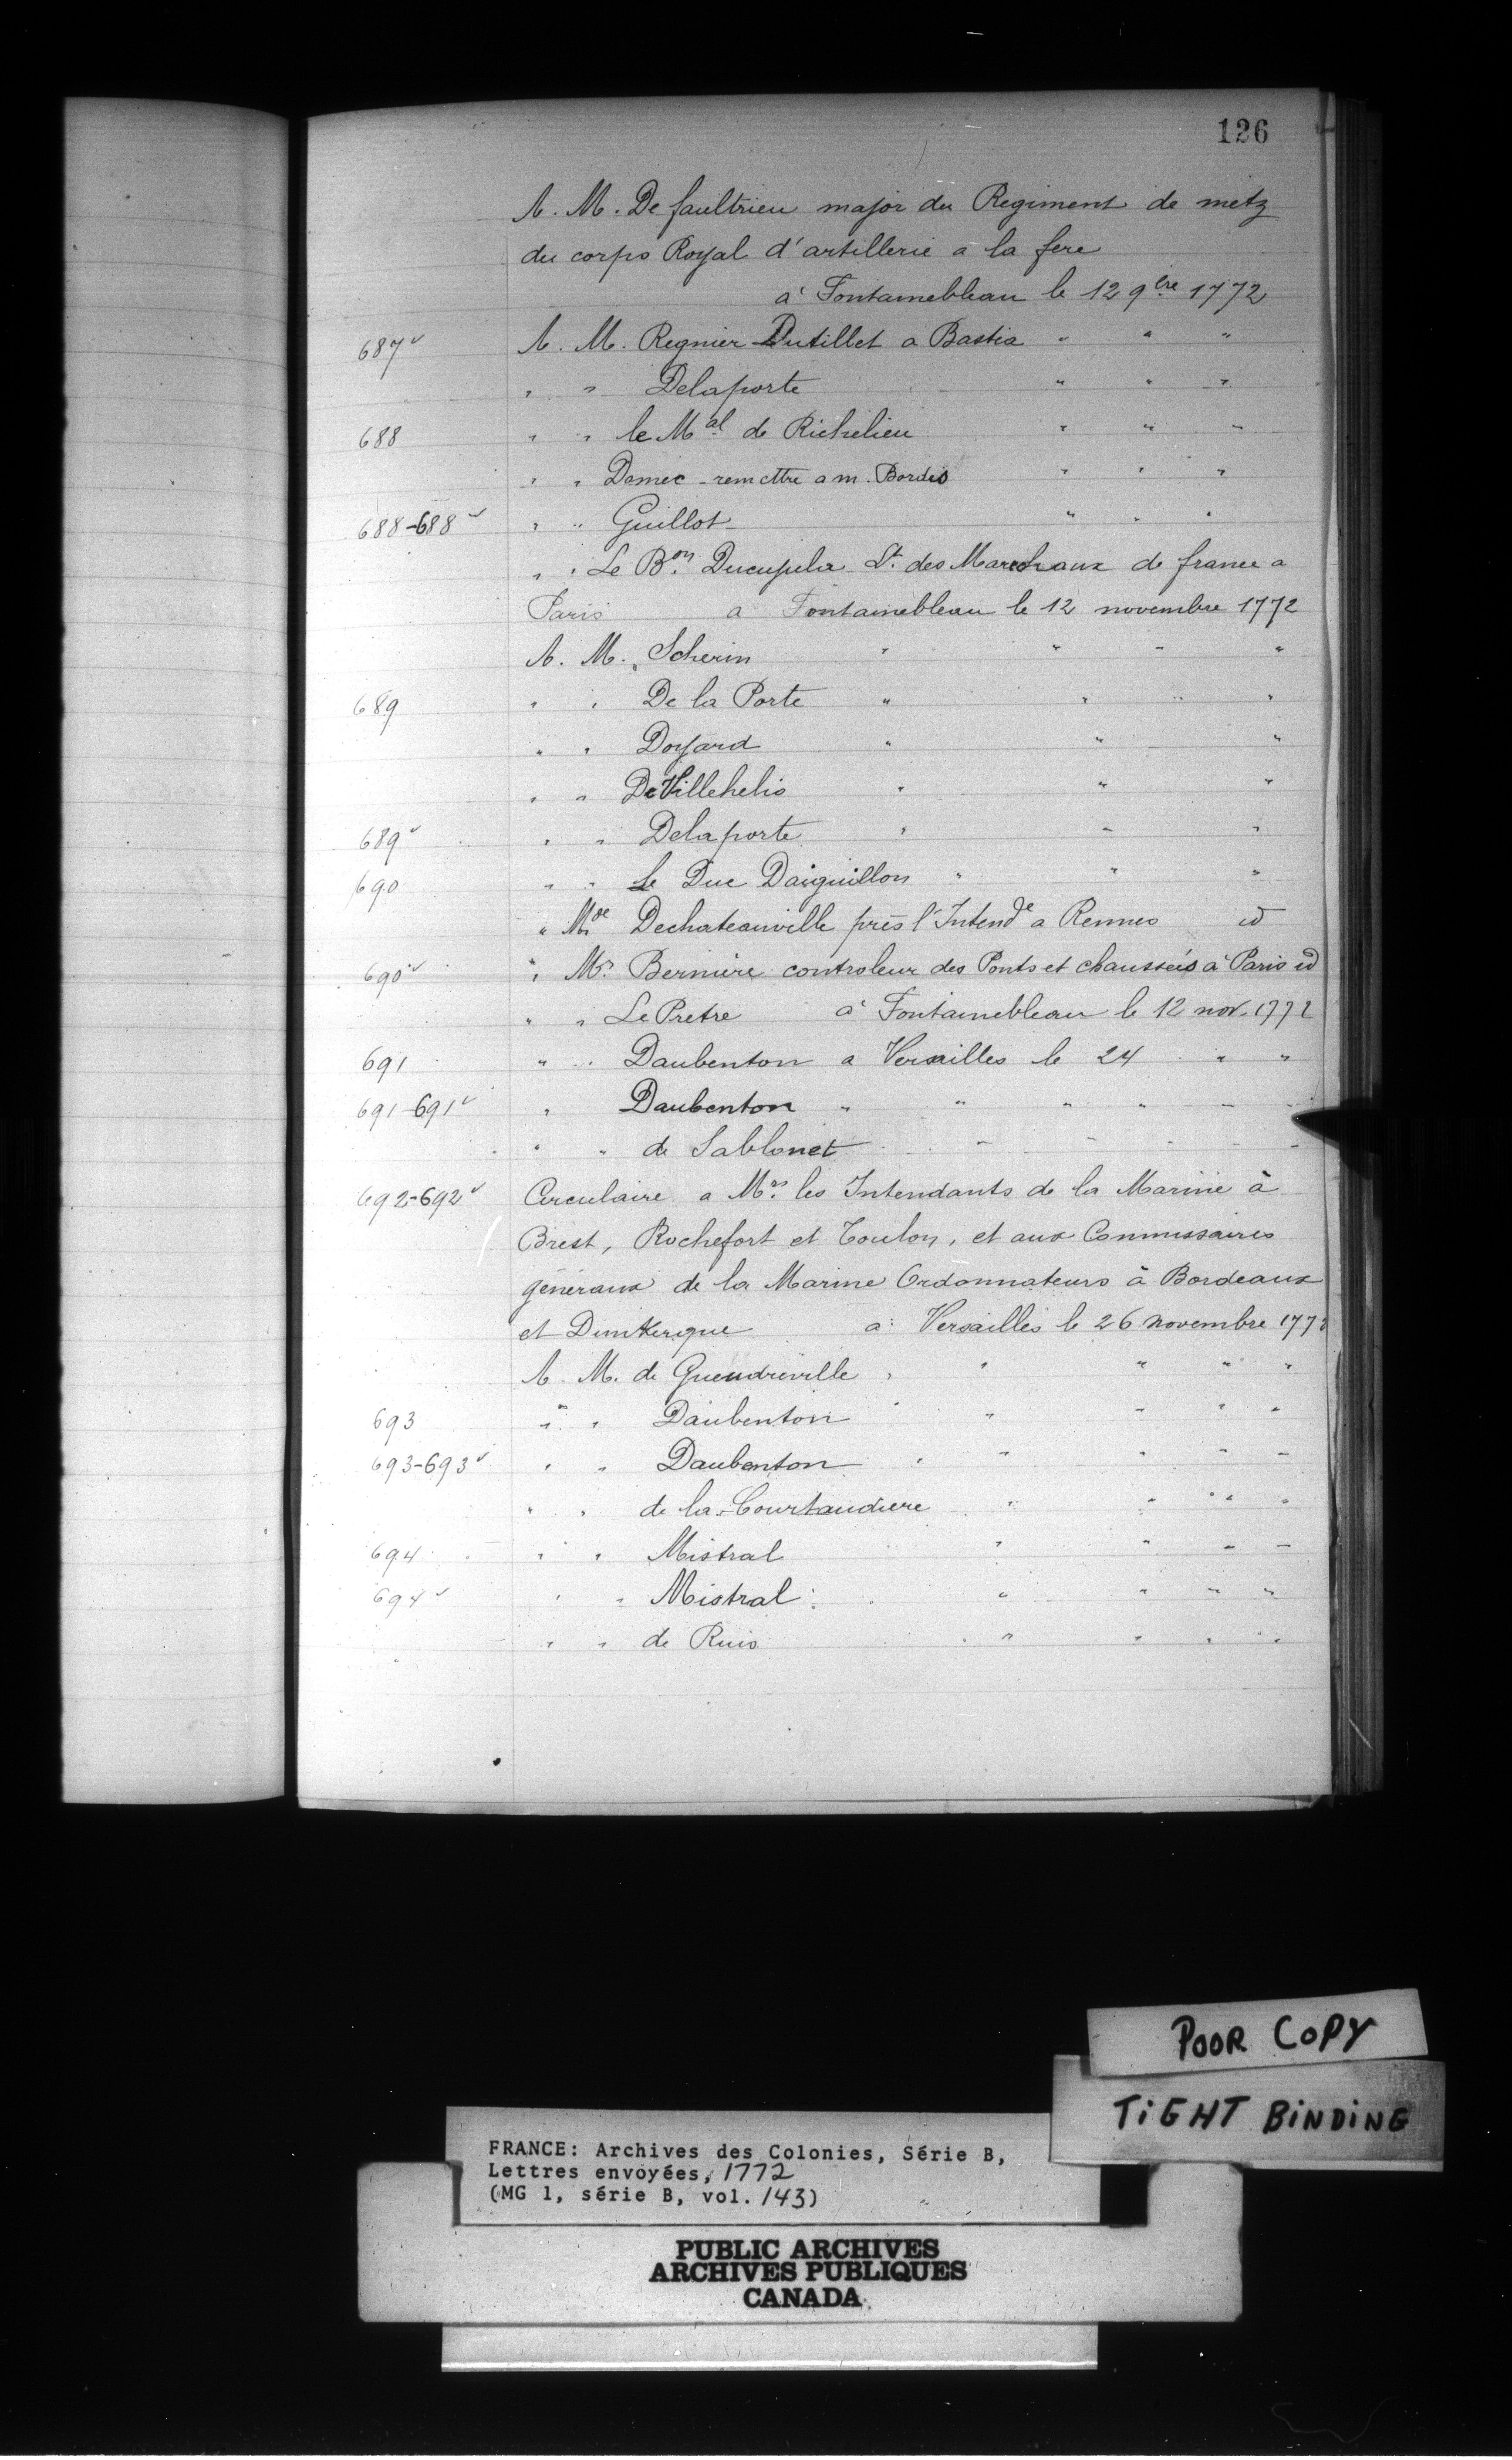 126
A. M. De faultrieu major du Regiment de metz
du corps Royal d'artillerie a la fere
a' Fontainebleau le 12 9bre 1772
687v A. M. Regnier Dutillet a Bastia " " "
" " Delaporte " " "
688 " " le Mal de Richelieu " " "
" " Domec - remettre a m. Bordes " " "
688-688v " " Guillot " " "
" " Le Bon Lt. des Marechaux de france a
Paris a Fontainebleau le 12 novembre 1772
A. M. Scherin " " " "
689 " " De la Porte " " " "
" " Doyard " " "
" " De Villehelio " " "
689v " " Delaporte " " "
690 " " Le Duc Daiguillon " " "
" Mde Dechateauville près l'Intende a Rennes id
690v " Mr Berniere controleur des Ponts et chaussées a' Paris id
" " Le Pretre a' Fontainebleau le 12 nov. 1772
691 " " Daubenton a Versailles le 24 " "
691-691v " Daubenton " " " " " "
" " de Sablonet " " " " "
692-692v Circulaire a Mrs les Intendants de la Marine à
Brest, Rochefort et Toulon, et aux Commissaires
généraux de la Marine Ordonnateurs à Bordeaux
et Dunkerque a: Versailles le 26 novembre 1772
A. M. de Gueudreville " " " " "
693 " " Daubenton " " " " "
693-693v " " Daubenton " " " " "
" " de la Courtaudiere " " " "
694 " " Mistral " " " "
694v " " Mistral " " " "
" " de Ruis " " " "
POOR COPY
TIGHT BINDING
FRANCE: Archives des Colonies, Série B,
Lettres envoyées, 1772
(MG 1, série B, vol. 143)
PUBLIC ARCHIVES
ARCHIVES PUBLIQUES
CANADA